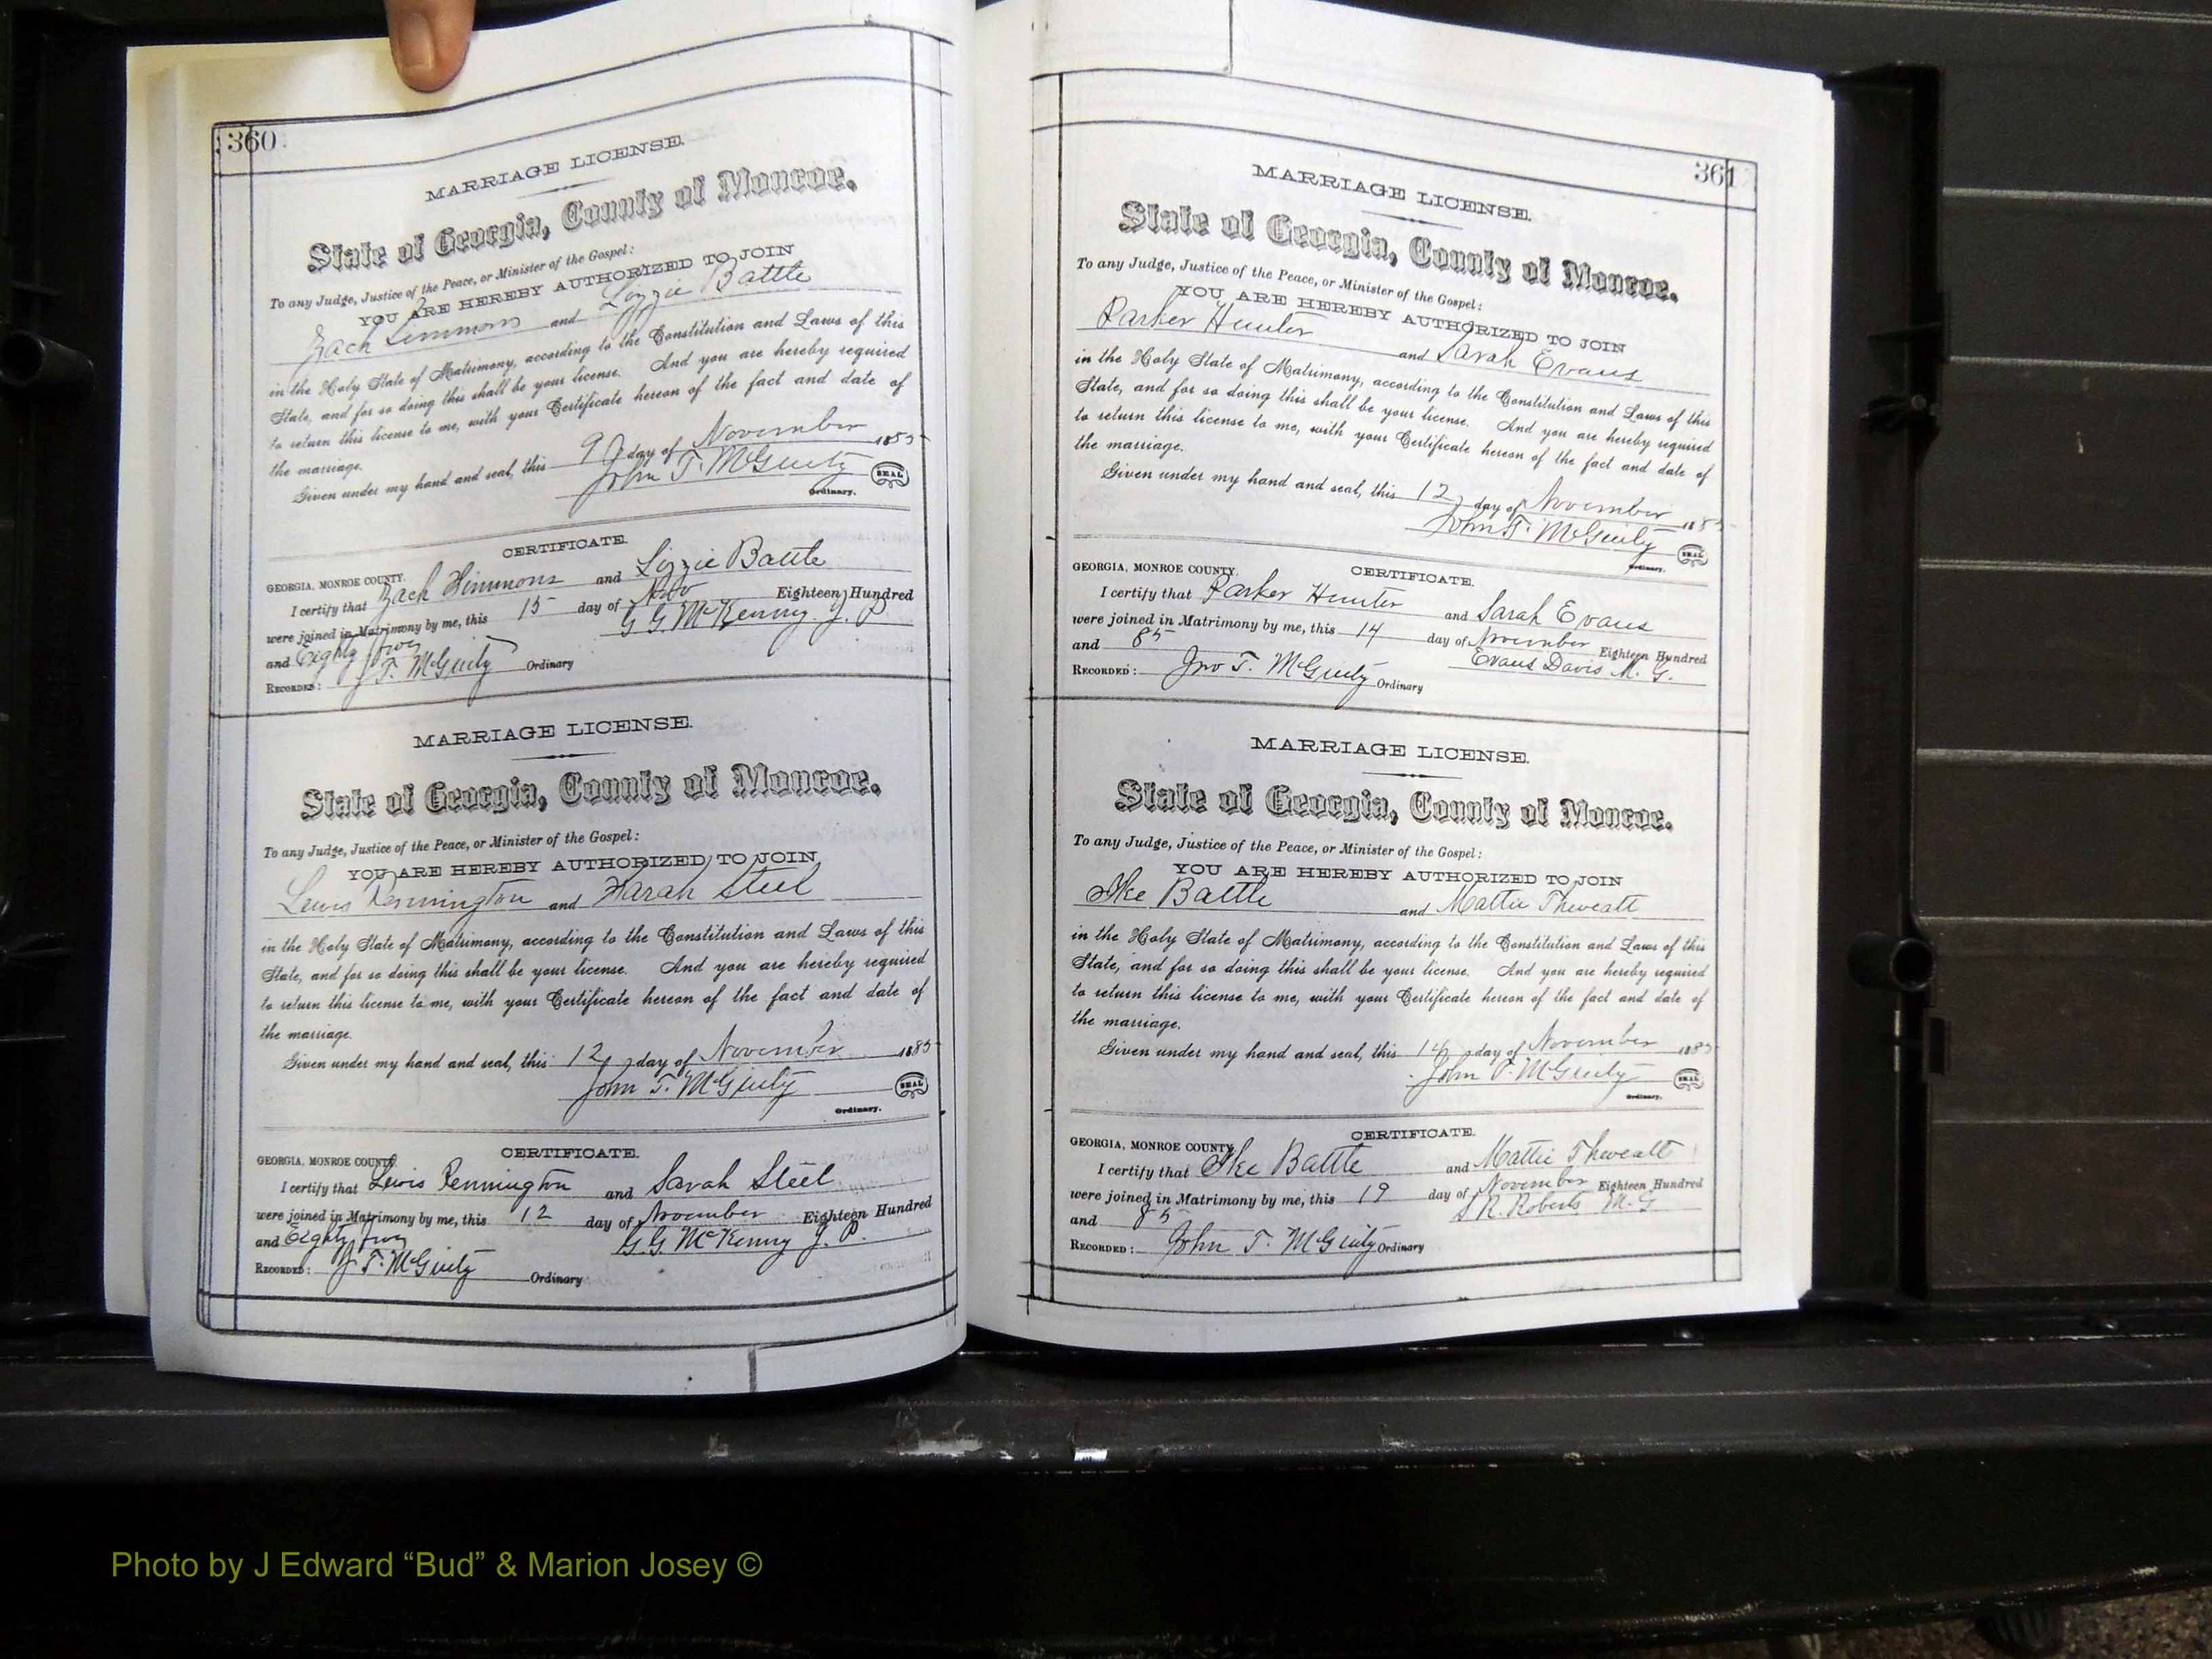 360
MARRIAGE LICENSE.
State of Georgia, County of Monroe.
To any Judge, Justice of the Peace, or Minister of the Gospel:
YOU ARE HEREBY AUTHORIZED TO JOIN
Zach Simmons and Lizzie Battle
in the Holy State of Matrimony, according to the Constitution and Laws of this
State, and for so doing this shall be your license. And you are hereby required
to return this license to me, with your Certificate hereon of the fact and date of
the marriage.
Given under my hand and seal, this 9 day of November 1885
John T. McGinty SEAL
Ordinary.
CERTIFICATE.
GEORGIA, MONROE COUNTY.
I certify that Zach Simmons and Lizzie Battle
were joined in Matrimony by me, this 15 day of Nov Eighteen Hundred
and Eighty five G G McKenny J. P
RECORDED: J T. McGinty Ordinary
MARRIAGE LICENSE.
State of Georgia, County of Monroe.
To any Judge, Justice of the Peace, or Minister of the Gospel:
YOU ARE HEREBY AUTHORIZED TO JOIN
Lewis Pennington and Sarah Steel
in the Holy State of Matrimony, according to the Constitution and Laws of this
State, and for so doing this shall be your license. And you are hereby required
to return this license to me, with your Certificate hereon of the fact and date of
the marriage.
Given under my hand and seal, this 12 day of November 1885
John T. McGinty SEAL
Ordinary.
CERTIFICATE.
GEORGIA, MONROE COUNTY.
I certify that Lewis Pennington and Sarah Steel
were joined in Matrimony by me, this 12 day of November Eighteen Hundred
and Eighty five G. G McKenny J. P.
RECORDED: J T. McGinty Ordinary
361
MARRIAGE LICENSE.
State of Georgia, County of Monroe.
To any Judge, Justice of the Peace, or Minister of the Gospel:
YOU ARE HEREBY AUTHORIZED TO JOIN
Parker Hunter and Sarah Evans
in the Holy State of Matrimony, according to the Constitution and Laws of this
State, and for so doing this shall be your license. And you are hereby required
to return this license to me, with your Certificate hereon of the fact and date of
the marriage.
Given under my hand and seal, this 12 day of November 1885
John T. McGinty SEAL
Ordinary.
CERTIFICATE.
GEORGIA, MONROE COUNTY.
I certify that Parker Hunter and Sarah Evans
were joined in Matrimony by me, this 14 day of November Eighteen Hundred
and 85 Evans Davis M. G.
RECORDED: Jno T. McGinty Ordinary
MARRIAGE LICENSE.
State of Georgia, County of Monroe.
To any Judge, Justice of the Peace, or Minister of the Gospel:
YOU ARE HEREBY AUTHORIZED TO JOIN
Ike Battle and Mattie
in the Holy State of Matrimony, according to the Constitution and Laws of this
State, and for so doing this shall be your license. And you are hereby required
to return this license to me, with your Certificate hereon of the fact and date of
the marriage.
Given under my hand and seal, this 14 day of November 1885
John T. McGinty SEAL
Ordinary.
CERTIFICATE.
GEORGIA, MONROE COUNTY.
I certify that Ike Battle and Mattie
were joined in Matrimony by me, this 19 day of November Eighteen Hundred
and 85 S R. Roberts M. G
RECORDED: John T. McGinty Ordinary
Photo by J Edward “Bud” & Marion Josey ©